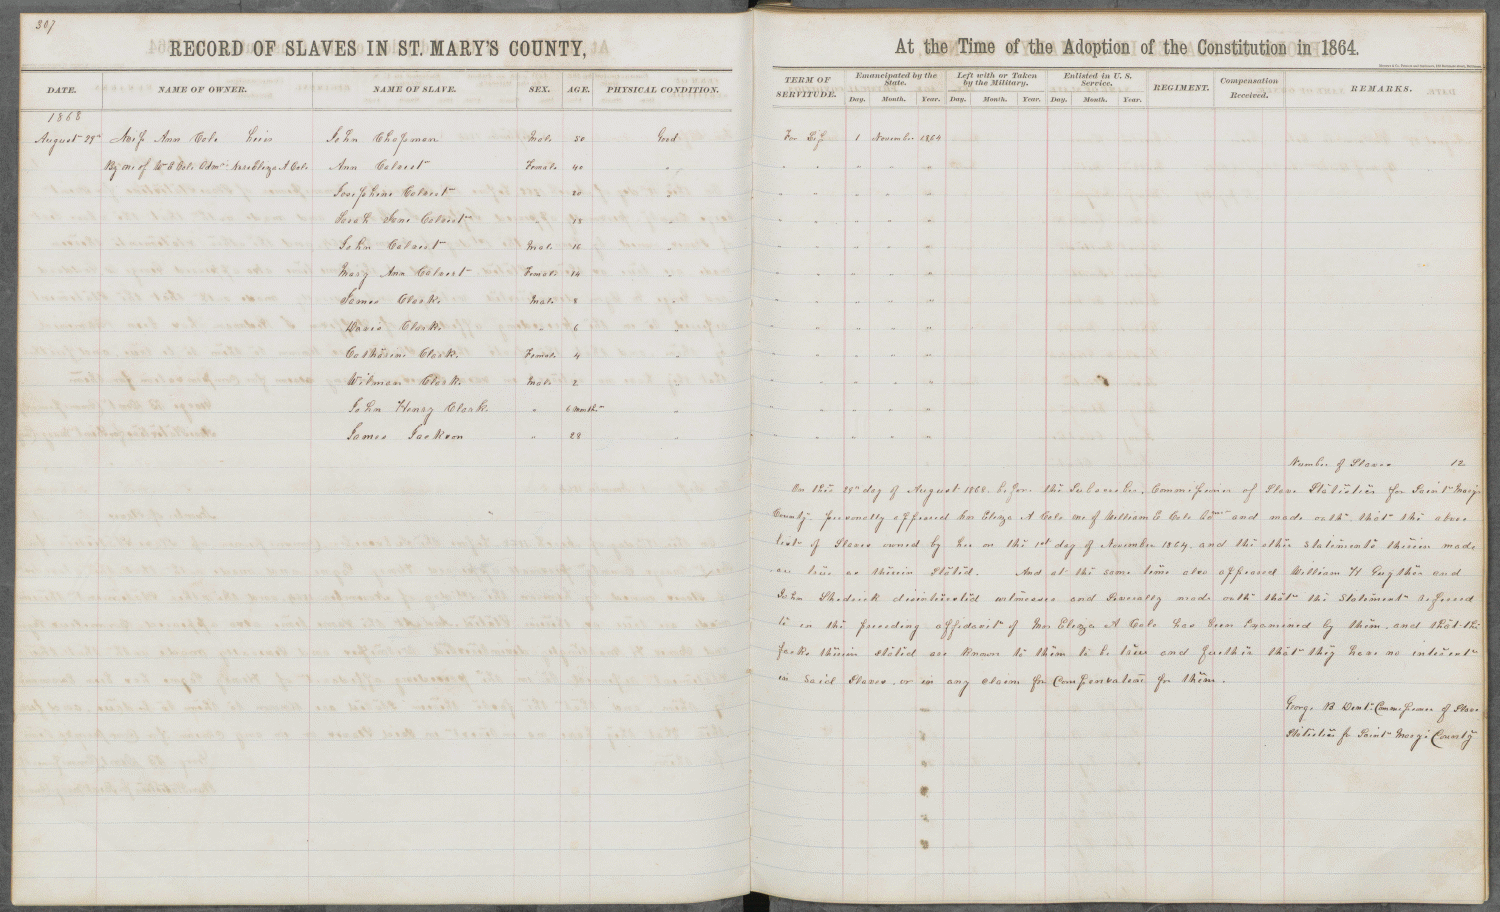 307
RECORD OF SLAVES IN ST. MARY'S COUNTY,
DATE. NAME OF OWNER. NAME OF SLAVE. SEX. AGE. PHYSICAL CONDITION.
1868
August 29th Miss Ann Cole heirs John Chapman Male 50 Good
By one of Wm E Cole Adm Mrs Eliza A Cole Ann Calvert Female 40 "
Josephine Calvert " 20 "
Sarah Jane Calvert " 18 "
John Calvert Male 16 "
Mary Ann Calvert Female 14 "
James Clark Male 8 "
Davis Clark " 6 "
Catharine Clark Female 4 "
Wilman Clark Male 2 "
John Henry Clark " 6 months "
James Jackson " 28 "
At the Time of the Adoption of the Constitution in 1864.
TERM OF SERVITUDE. Emancipated by the State. Left with or Taken by the Military. Enlisted in U. S. Service. REGIMENT. Compensation Received. REMARKS.
Day. Month. Year. Day. Month. Year. Day. Month. Year.
For Life 1 November 1864
" " " "
" " " "
" " " "
" " " "
" " " "
" " " "
" " " "
" " " "
" " " "
" " " "
" " " "
Number of Slaves 12
On this 29th day of August 1868. before the Subscriber, Commissioner of Slave Statistics for Saint Marys
County personally appeared Mrs Eliza A Cole one of William E Cole and made oath that the above
list of Slaves owned by her on the 1st day of November 1864. and the other statements therein made
are true as therein stated. And at the same time also appeared William H Guyther and
John Shedrick disinterested witnesses and severally made oath that the statement referred
to in the preceding affidavit of Mrs Eliza A Cole has been examined by them. and that the
facts therein stated are known to them to be true and further that they have no interest
in said Slaves. or in any claim for Compensation for them.
George B Dent Commissioner of Slave
Statistics for Saint Marys County